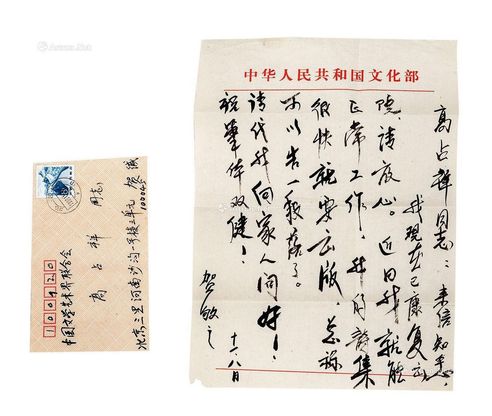 Artron.Net
中华人民共和国文化部
高占祥同志：来信知悉，
我现在已康复出
院，请放心。近日我就能
正常工作，我的诗集
很快就要出版 总
可以告一段落了。
请代我向家人问好！
祝笔体双健！
贺敬之
十一.八日
中国文学艺术界联合会
高占祥 同志
北京三里河南沙沟一号楼 单元 贺缄
100045